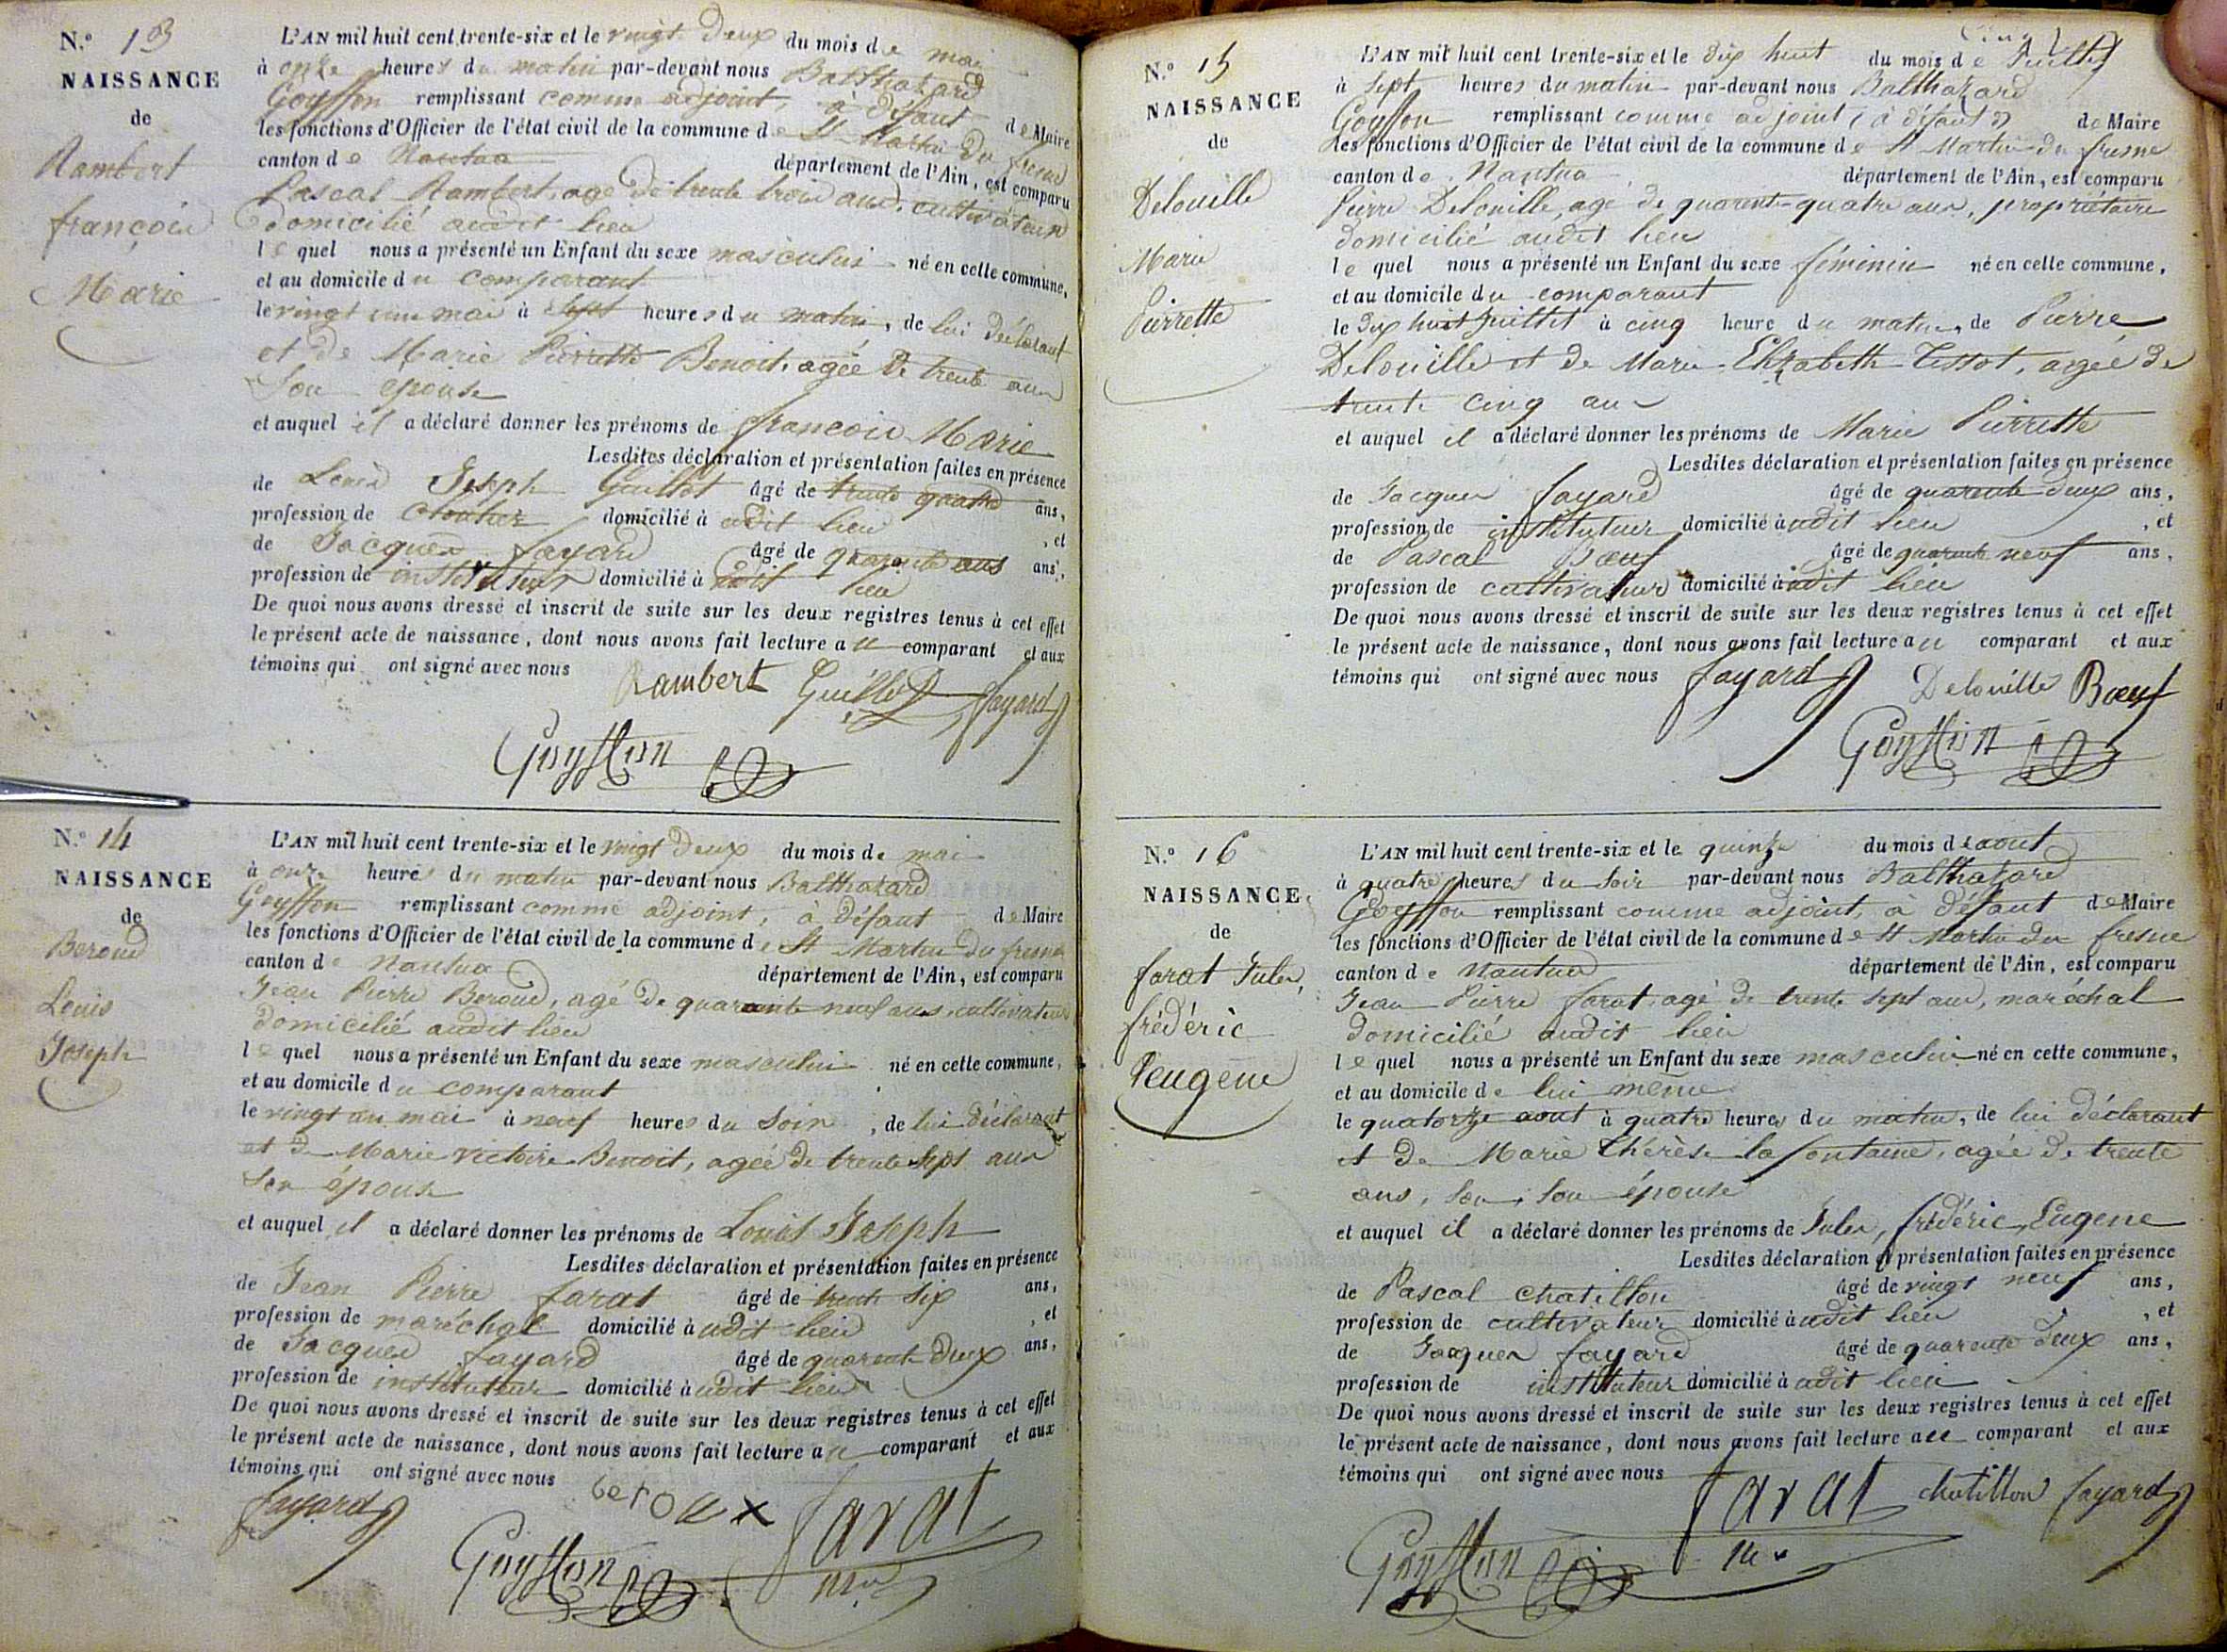 N.° 13
NAISSANCE
de
Rambert
françois
Marie
L'AN mil huit cent trente-six et le vingt deux du mois de mai
à onze heures du matin par-devant nous Balthazard
Goyffon remplissant comme adjoint, à défaut de Maire
les fonctions d'Officier de l'état civil de la commune de St Martin du fresne
canton de Nantua département de l'Ain, est comparu
Pascal Rambert, agé de trente trois ans, cultivateur
domicilié audit lieu
lequel nous a présenté un Enfant du sexe masculin né en cette commune,
et au domicile du comparant
le vingt un mai à sept heures du matin, de lui déclarant
et de Marie Pierrette Benoit, agée de trente ans
son épouse
et auquel il a déclaré donner les prénoms de françois Marie
Lesdites déclaration et présentation faites en présence
de Louis Joseph Guillot âgé de trente quatre ans,
profession de cloutier domicilié à udit lieu , et
de Jacques fayard âgé de quarante ans ans,
profession de instituteur domicilié à udit lieu
De quoi nous avons dressé et inscrit de suite sur les deux registres tenus à cet effet
le présent acte de naissance, dont nous avons fait lecture au comparant et aux
témoins qui ont signé avec nous Rambert Guillot fayard
Goyffon
N.° 14
NAISSANCE
de
Beroud
Louis
Joseph
L'AN mil huit cent trente-six et le vingt deux du mois de mai
à onze heures du matin par-devant nous Balthazard
Goyffon remplissant comme adjoint, à défaut de Maire
les fonctions d'Officier de l'état civil de la commune de St Martin du fresne
canton de Nantua département de l'Ain, est comparu
Jean Pierre Beroud, agé de quarante neuf ans, cultivateur
domicilié audit lieu
lequel nous a présenté un Enfant du sexe masculin né en cette commune,
et au domicile du comparant
le vingt un mai à neuf heures du soir , de lui déclarant
et de Marie victoire Benoit, agée de trente sept ans
son épouse
et auquel il a déclaré donner les prénoms de Louis Joseph
Lesdites déclaration et présentation faites en présence
de Jean Pierre farat âgé de trente six ans,
profession de maréchal domicilié à udit lieu , et
de Jacques fayard âgé de quarante deux ans,
profession de instituteur domicilié à udit lieu
De quoi nous avons dressé et inscrit de suite sur les deux registres tenus à cet effet
le présent acte de naissance, dont nous avons fait lecture au comparant et aux
témoins qui ont signé avec nous beroux farat
fayard Goyffon
N.° 15
NAISSANCE
de
Delouille
Marie
Pierrette
L'AN mil huit cent trente-six et le dix huit du mois de Juillet
à sept heures du matin par-devant nous Balthazard
Goyffon remplissant comme adjoint (à défaut) de Maire
les fonctions d'Officier de l'état civil de la commune de St Martin du fresne
canton de Nantua département de l'Ain, est comparu
Pierre Delouille, agé de quarente-quatre ans, propriétaire
domicilié audit lieu
lequel nous a présenté un Enfant du sexe féminin né en cette commune,
et au domicile du comparant
le dix huit Juillet à cinq heure du matin, de Pierre
Delouille et de Marie Elizabeth Tissot, agée de
trente cinq ans
et auquel il a déclaré donner les prénoms de Marie Pierrette
Lesdites déclaration et présentation faites en présence
de Jacques fayard âgé de quarente deux ans,
profession de instituteur domicilié à udit lieu , et
de Pascal Bœuf âgé de quarente neuf ans,
profession de cultivateur domicilié à udit lieu
De quoi nous avons dressé et inscrit de suite sur les deux registres tenus à cet effet
le présent acte de naissance, dont nous avons fait lecture au comparant et aux
témoins qui ont signé avec nous fayard Delouille Bœuf
Goyffon
N.° 16
NAISSANCE
de
farat Jules,
frédéric
Peugene
L'AN mil huit cent trente-six et le quinze du mois de aout
à quatre heures du soir par-devant nous Balthazard
Goyffon remplissant comme adjoint, à défaut de Maire
les fonctions d'Officier de l'état civil de la commune de St Martin du fresne
canton de Nantua département de l'Ain, est comparu
Jean Pierre farat, agé de trente sept ans, maréchal
domicilié audit lieu
lequel nous a présenté un Enfant du sexe masculin né en cette commune,
et au domicile de lui même
le quatorze aout à quatre heures du matin, de lui déclarant
et de Marie thérèse lafontaine, agée de trente
ans, son, son épouse
et auquel il a déclaré donner les prénoms de Jules, frédéric, Eugene
Lesdites déclaration et présentation faites en présence
de Pascal chatillon âgé de vingt neuf ans,
profession de cultivateur domicilié à udit lieu , et
de Jacques fayard âgé de quarente deux ans,
profession de instituteur domicilié à udit lieu
De quoi nous avons dressé et inscrit de suite sur les deux registres tenus à cet effet
le présent acte de naissance, dont nous avons fait lecture au comparant et aux
témoins qui ont signé avec nous farat chatillon fayard
Goyffon